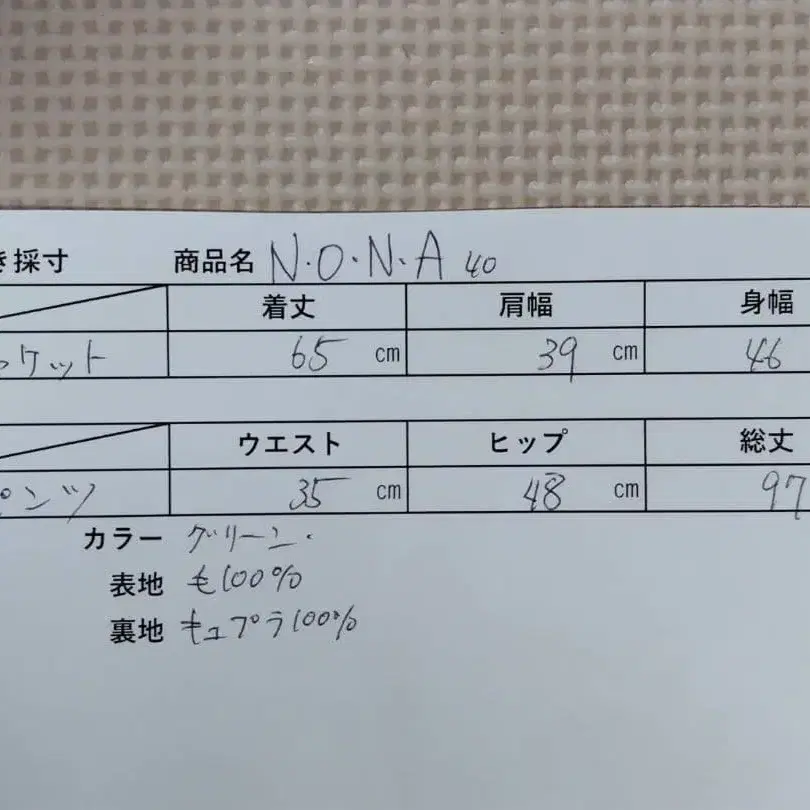 き採寸 商品名 N.O.N.A 40
着丈 肩幅 身幅
ケット 65 cm 39 cm 46
ウエスト ヒップ 総丈
パンツ 35 cm 48 cm 97
カラー グリーン.
表地 毛100%
裏地 キュプラ100%